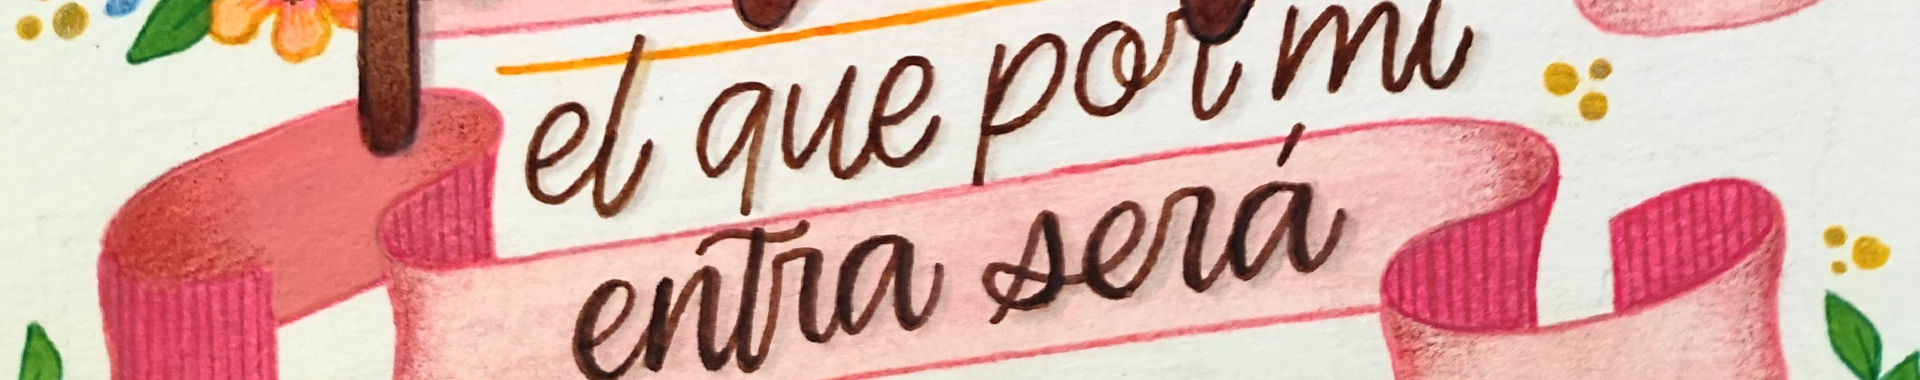 el que por mi
entra será